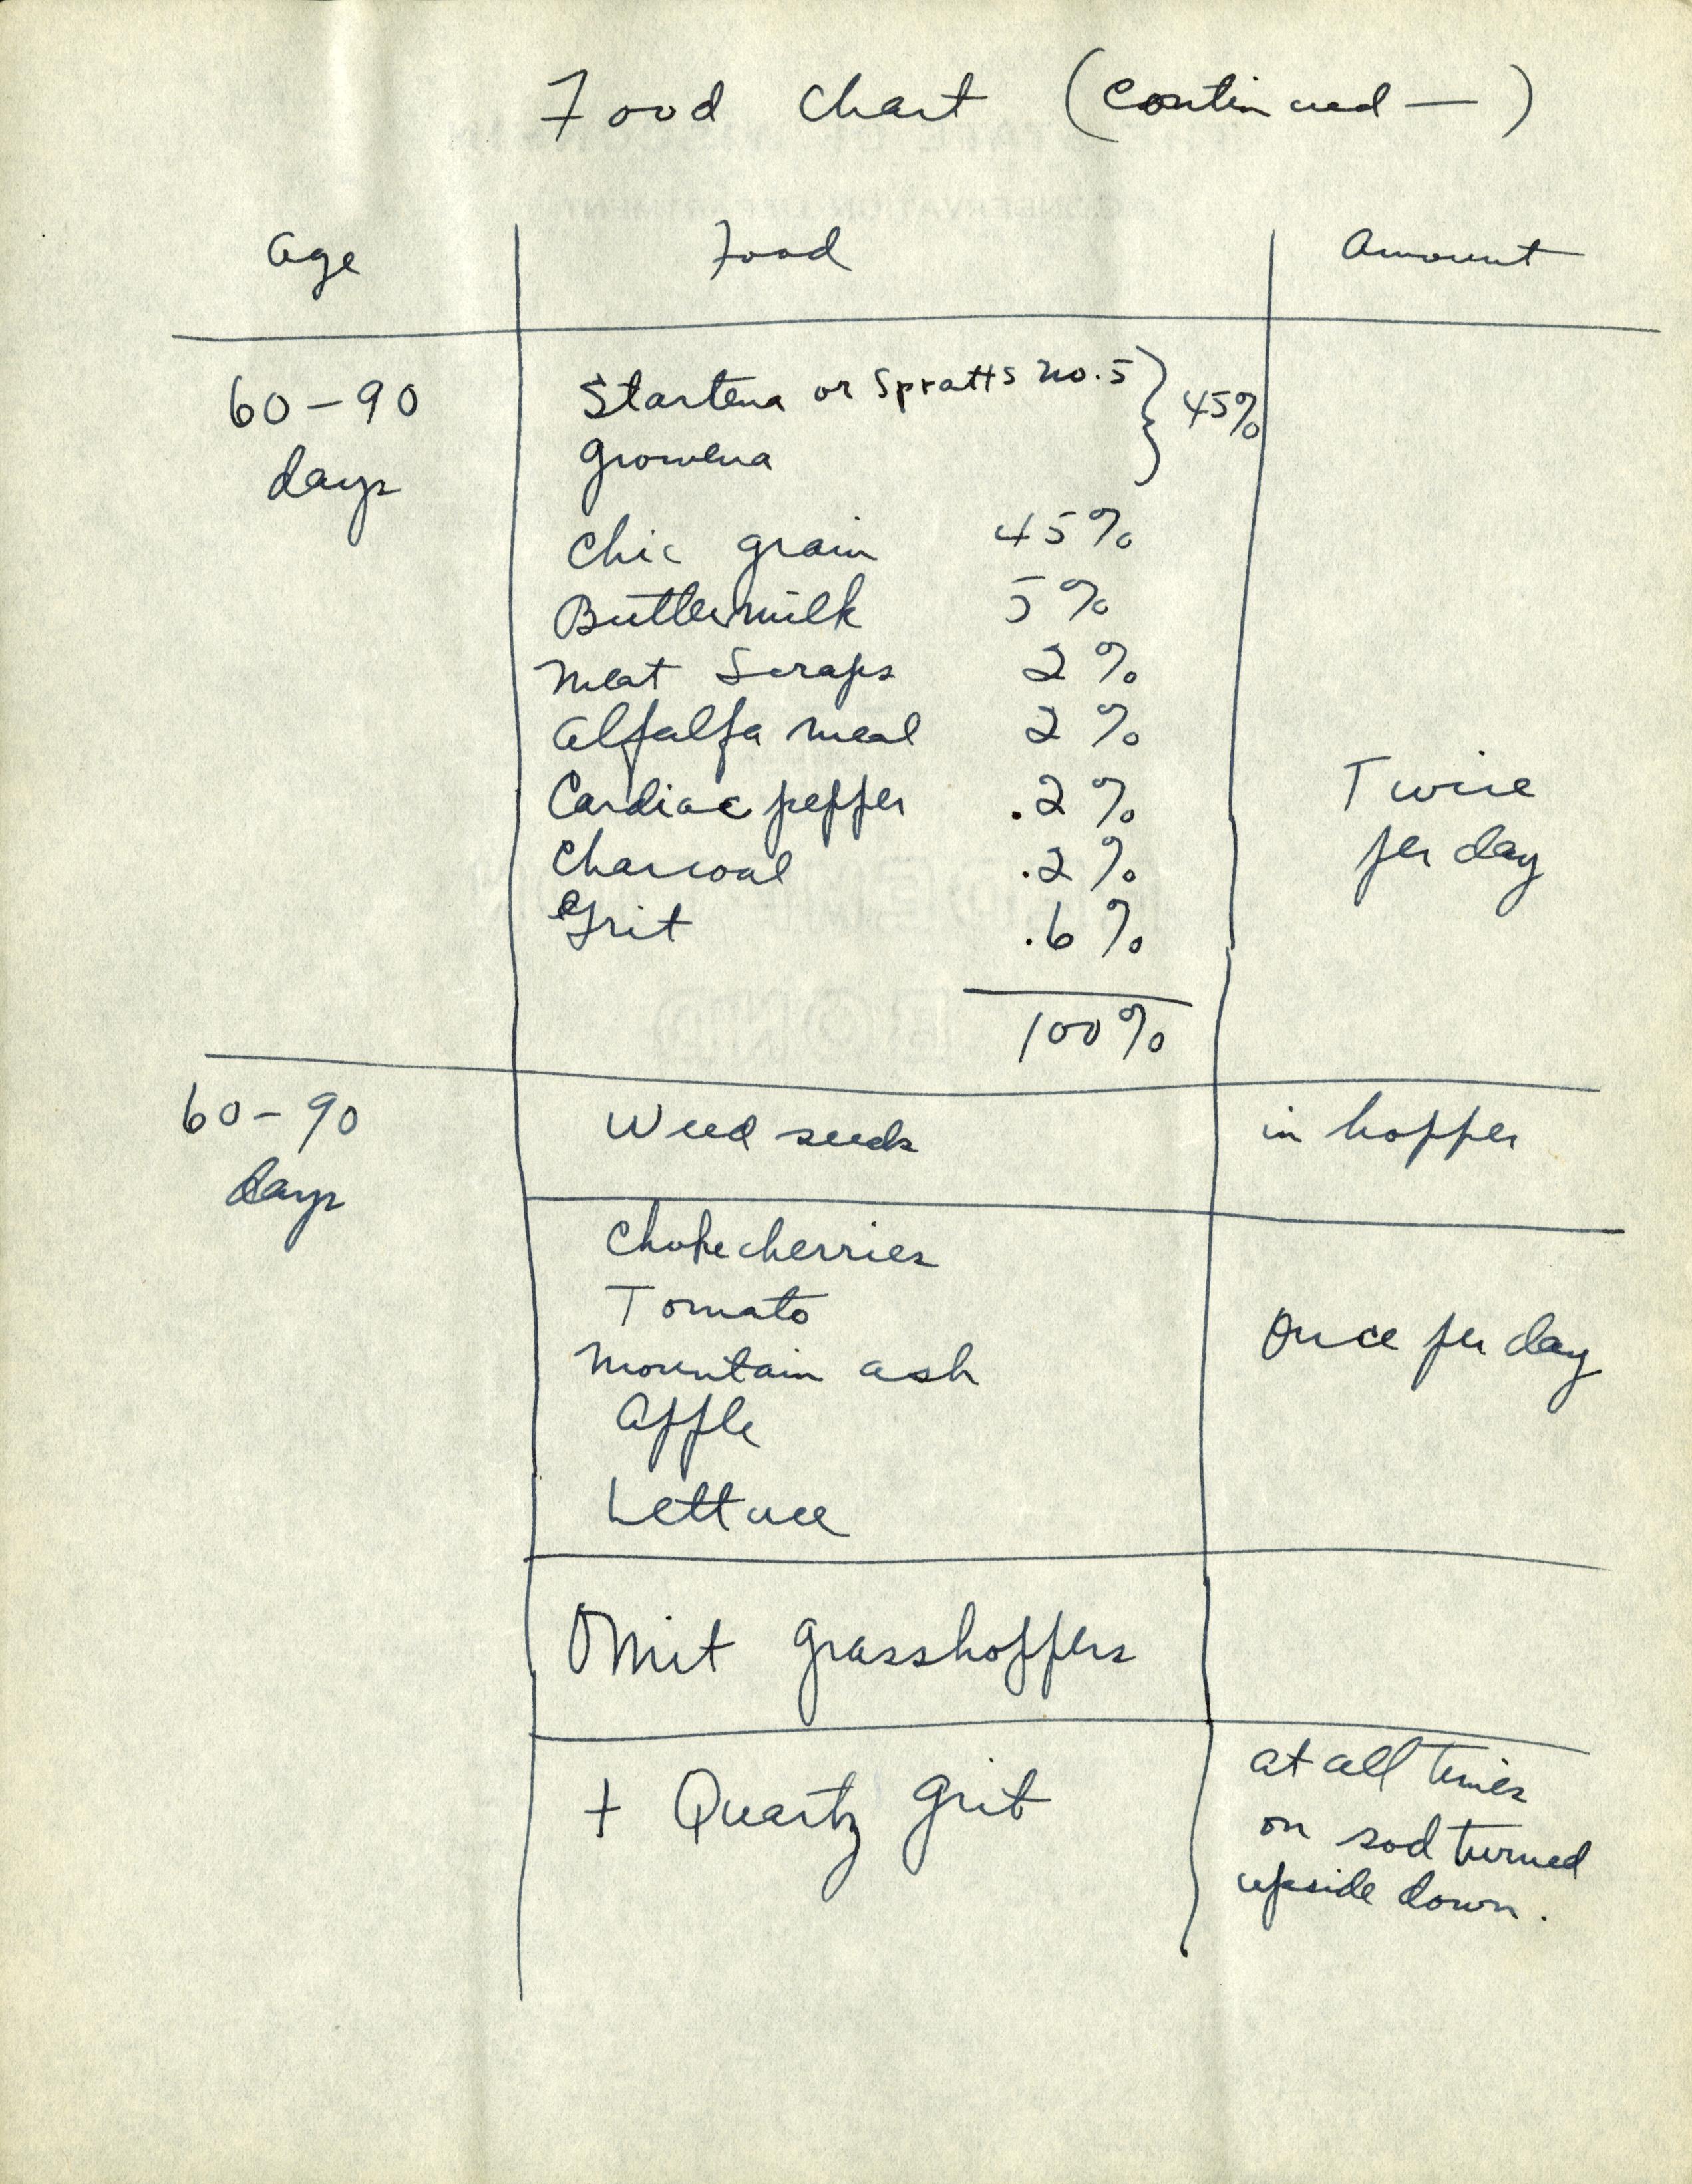 Food Chart (Continued —)
Age Food Amount
60-90 Startena or Spratts No. 5 } 45%
days Growena
Chic grain 45%
Buttermilk 5%
Meat Scraps 2%
Alfalfa meal 2%
Cardiac pepper .2%
Charcoal .2%
Grit .6%
Twice
per day
100%
60-90 Weed seeds in hopper
days
Chokecherries
Tomato
Mountain ash
Apple
Lettuce
Once per day
Omit grasshoppers
+ Quartz grit
at all times
on sod turned
upside down.